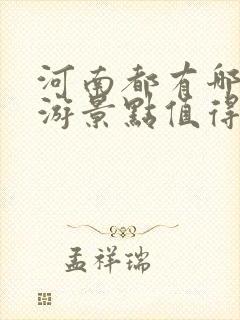 河南都有哪
游景點值得
孟祥瑞